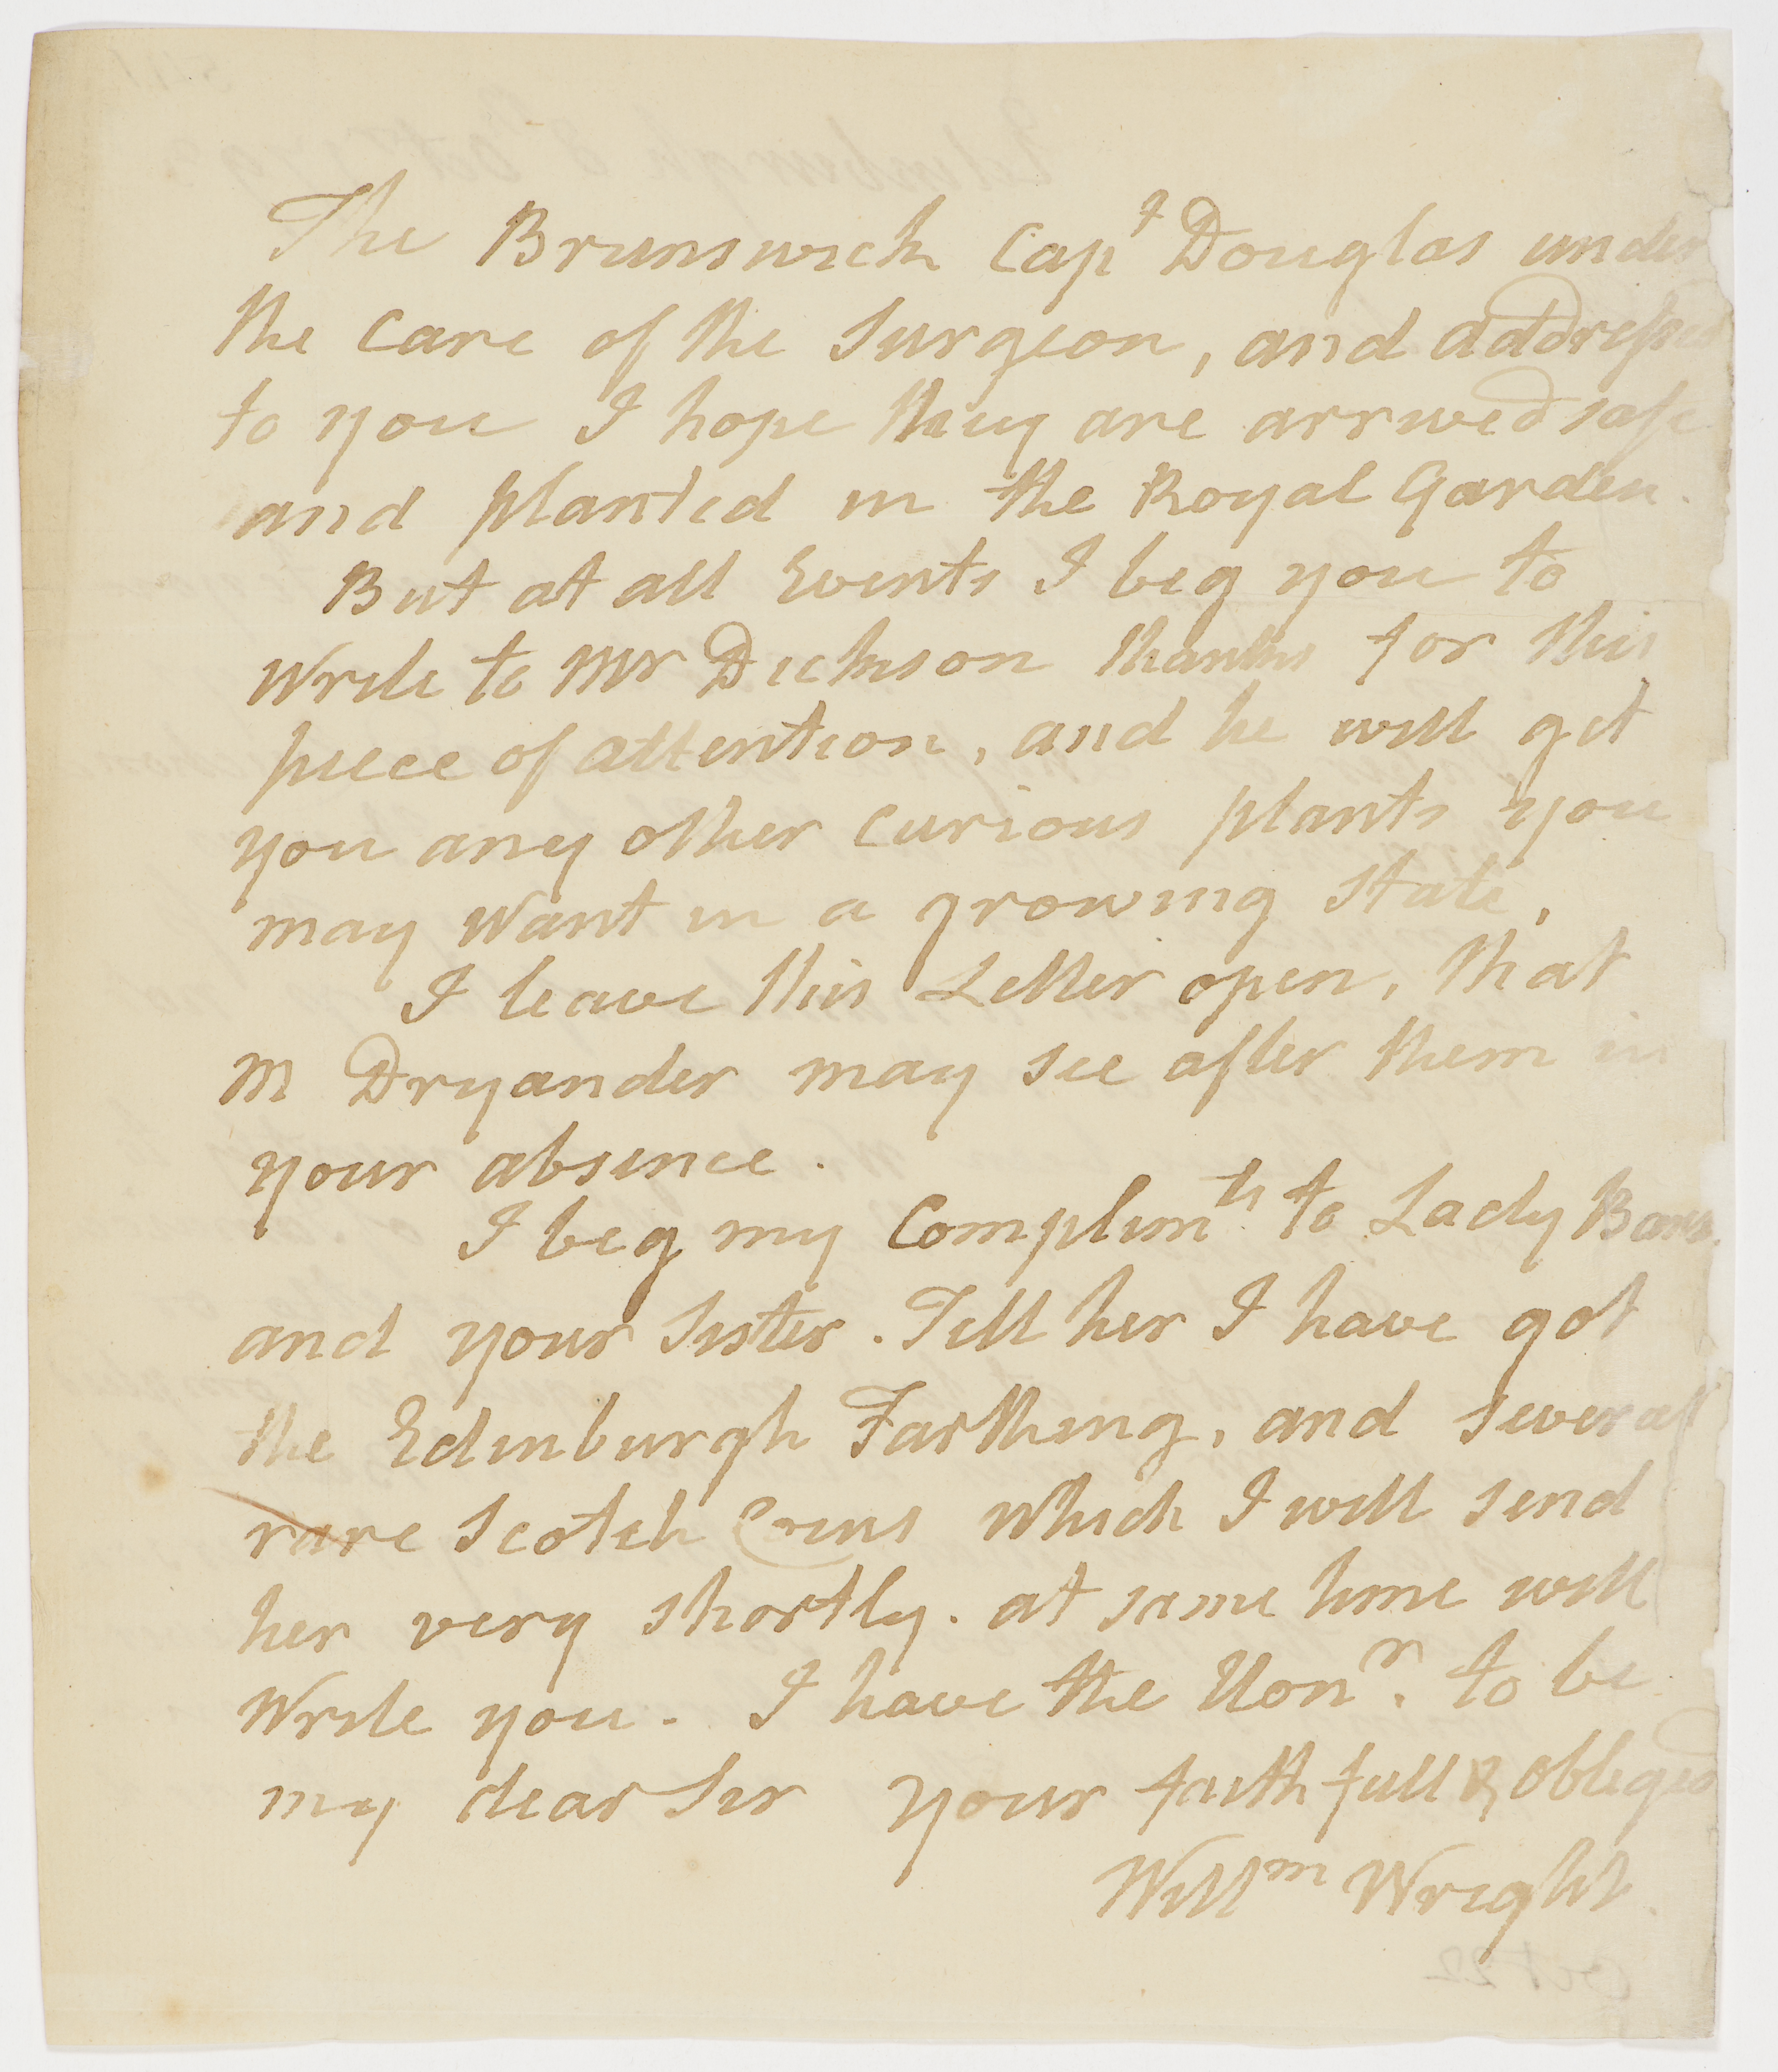 The Brunswick Capt Douglas under
the Care of the Surgeon, and addressed
to you I hope they are arrived safe
and planted in the Royal Garden.
But at all Events I beg you to
Write to Mr Dickson thanks for this
piece of attention, and he will get
you any other Curious plants you
may Want in a growing State,
I leave this Letter open, that
M Dryander may see after them in
your absence.
I beg my Complimts. to Lady Banks
and your Sister. Tell her I have got
the Edinburgh Farthing, and several
rare Scotch Coins Which I will send
her very shortly. at same time will
Write you. I have the Honr. to be
my dear Sir your faithfull & obliged
Willm Wright